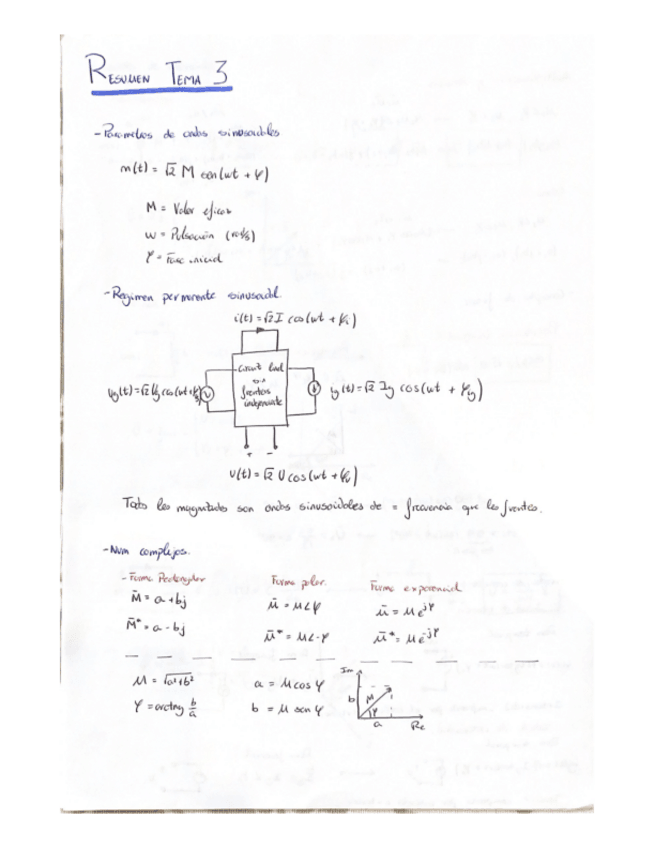 RESUMEN TEMA 3
- Parametros de ondas sinusoidales
m(t) = √2 M cos(wt + φ)
M = Valor eficaz
w = Pulsación (rad/s)
φ = Fase inicial
- Regimen permanente sinusoidal.
i(t) = √2 I cos(wt + φi)
Circuit lineal
sin
fuentes
independiente
ug(t) = √2 Ug cos(wt + φg)
ig(t) = √2 Ig cos(wt + φg)
+ -
u(t) = √2 U cos(wt + φu)
Todas las magnitudes son ondas sinusoidales de = frecuencia que las fuentes.
- Num complejos.
- Forma Rectangular
Forma polar.
Forma exponencial
M̄ = a + bj
M̄ = M∠φ
M̄ = M e^jφ
M̄* = a - bj
M̄* = M∠-φ
M̄* = M e^-jφ
M = √a²+b²
a = M cos φ
φ = arctng b/a
b = M sen φ
Im
b
M
φ
a
Re